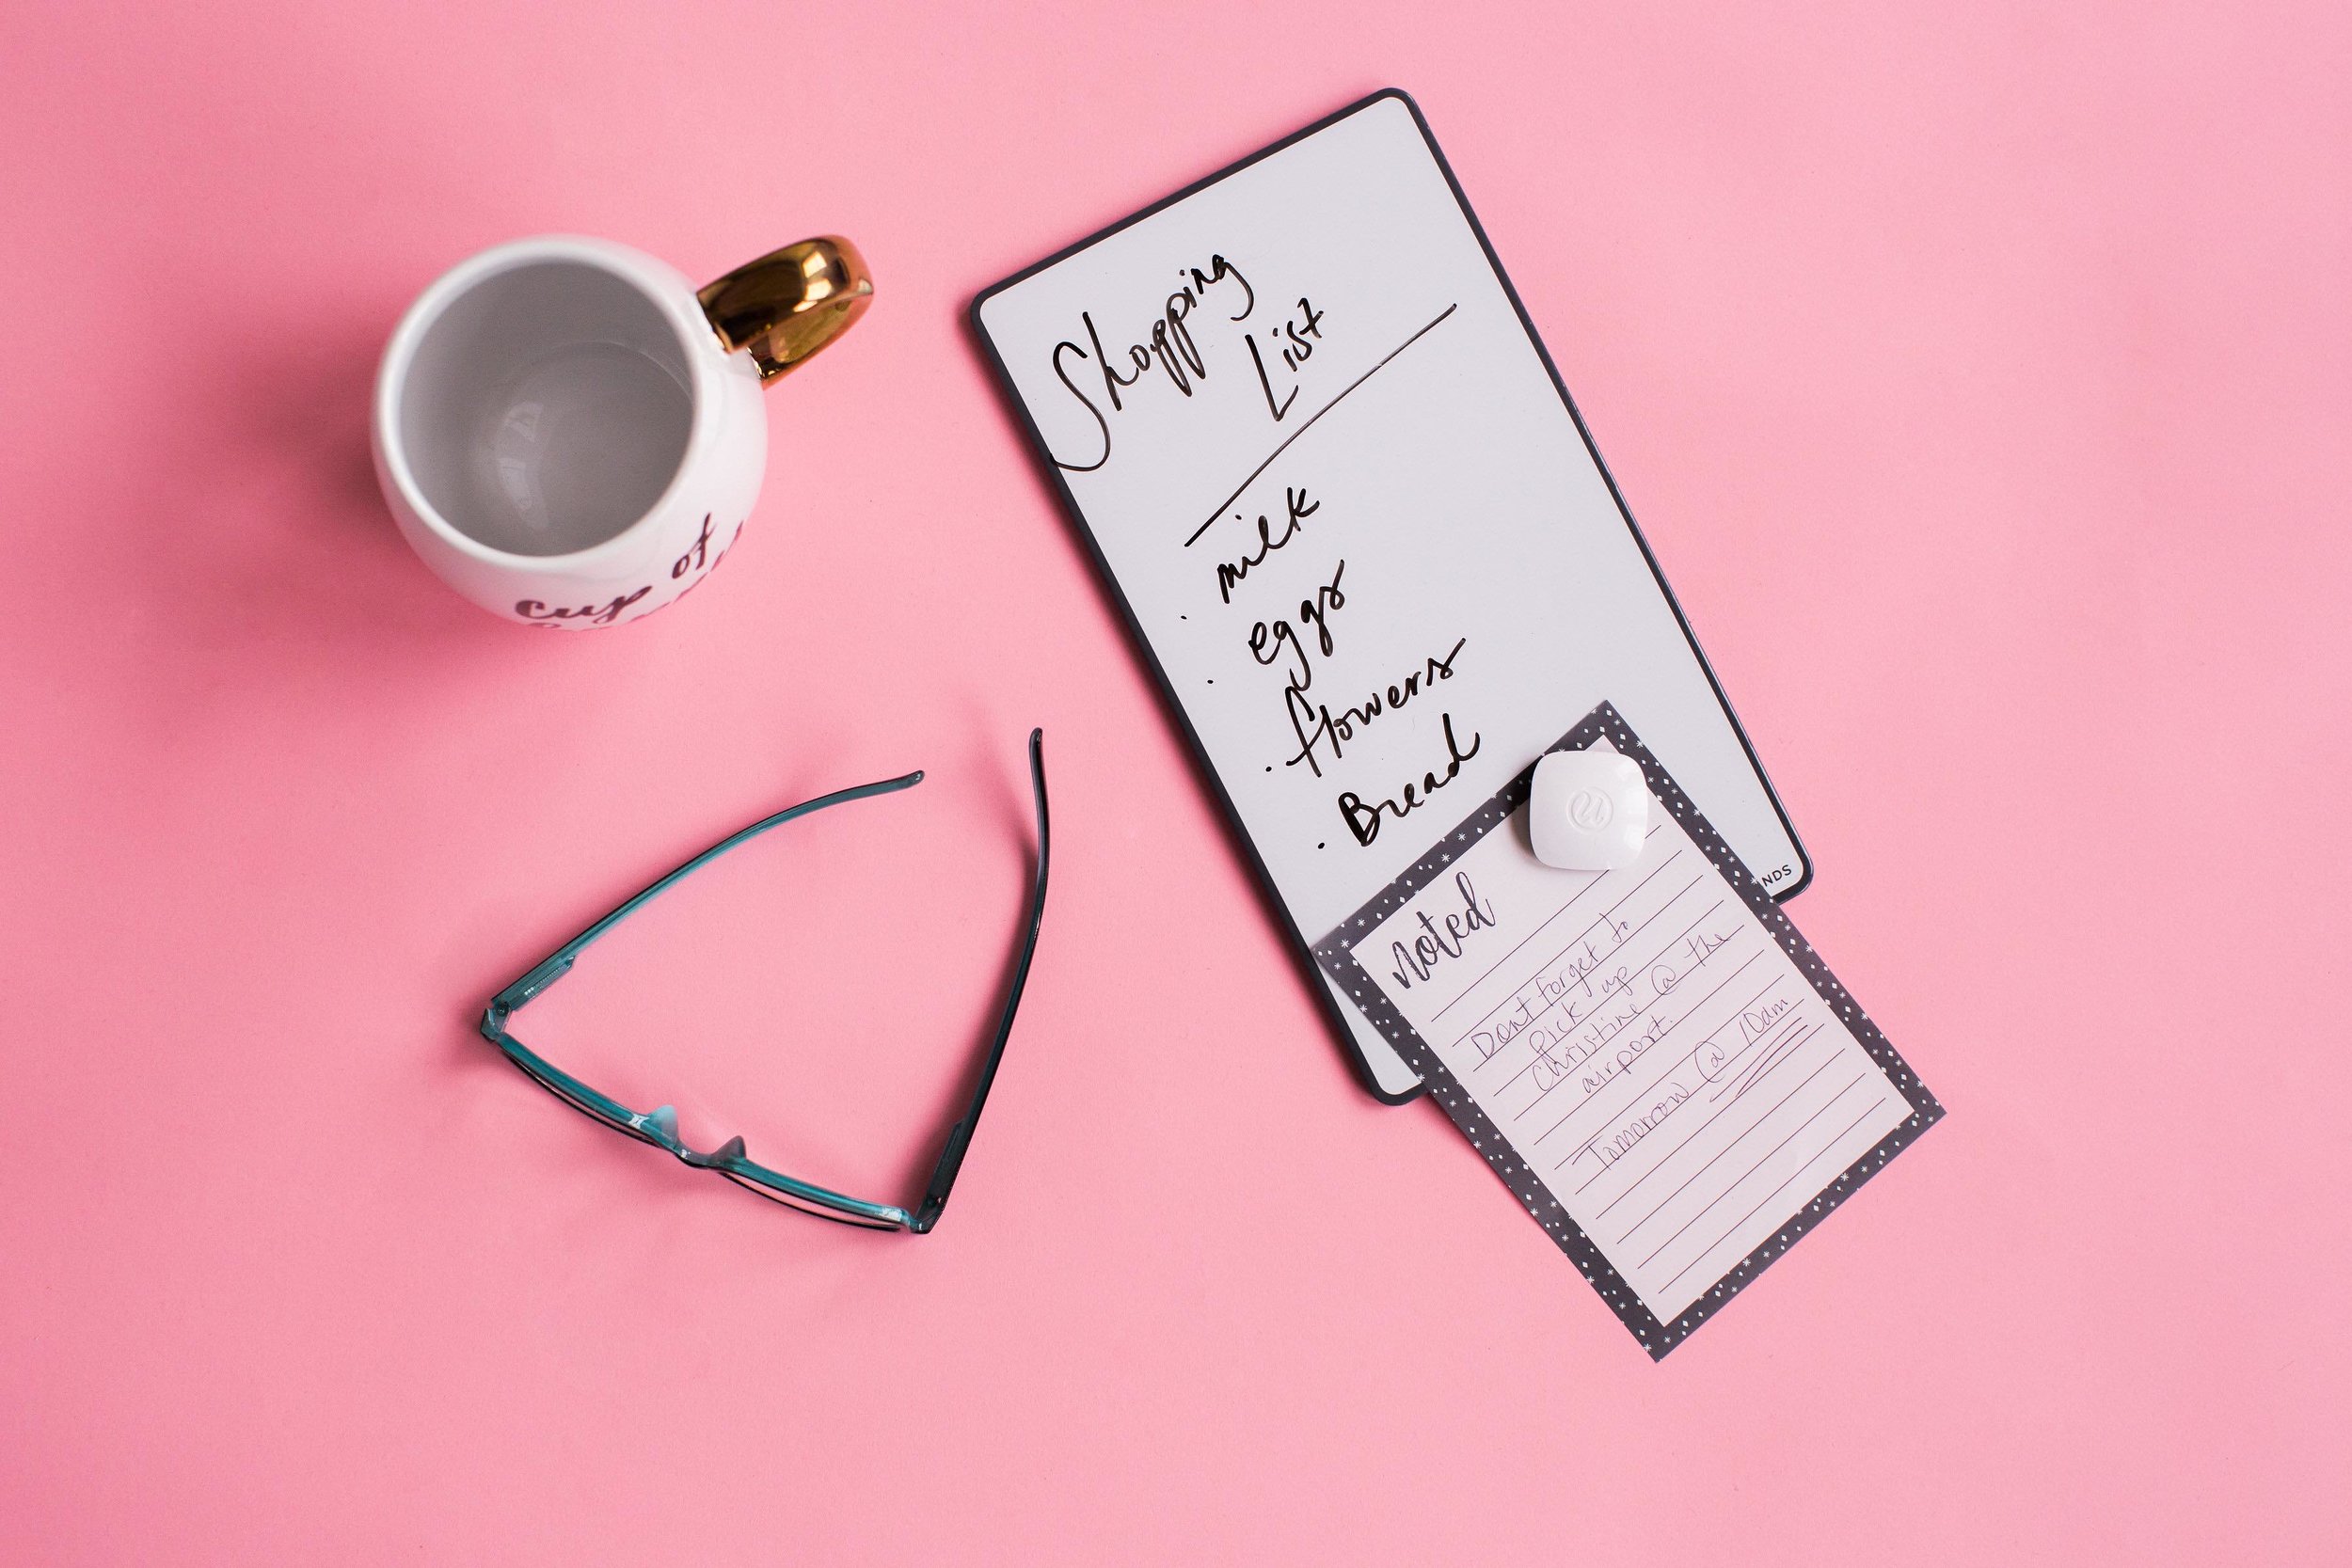 cup of
Shopping
List
milk
· eggs
· flowers
· Bread
NDS
noted
Dont forget to
Pick up
Christine @ the
airport.
Tomorrow @ 10am